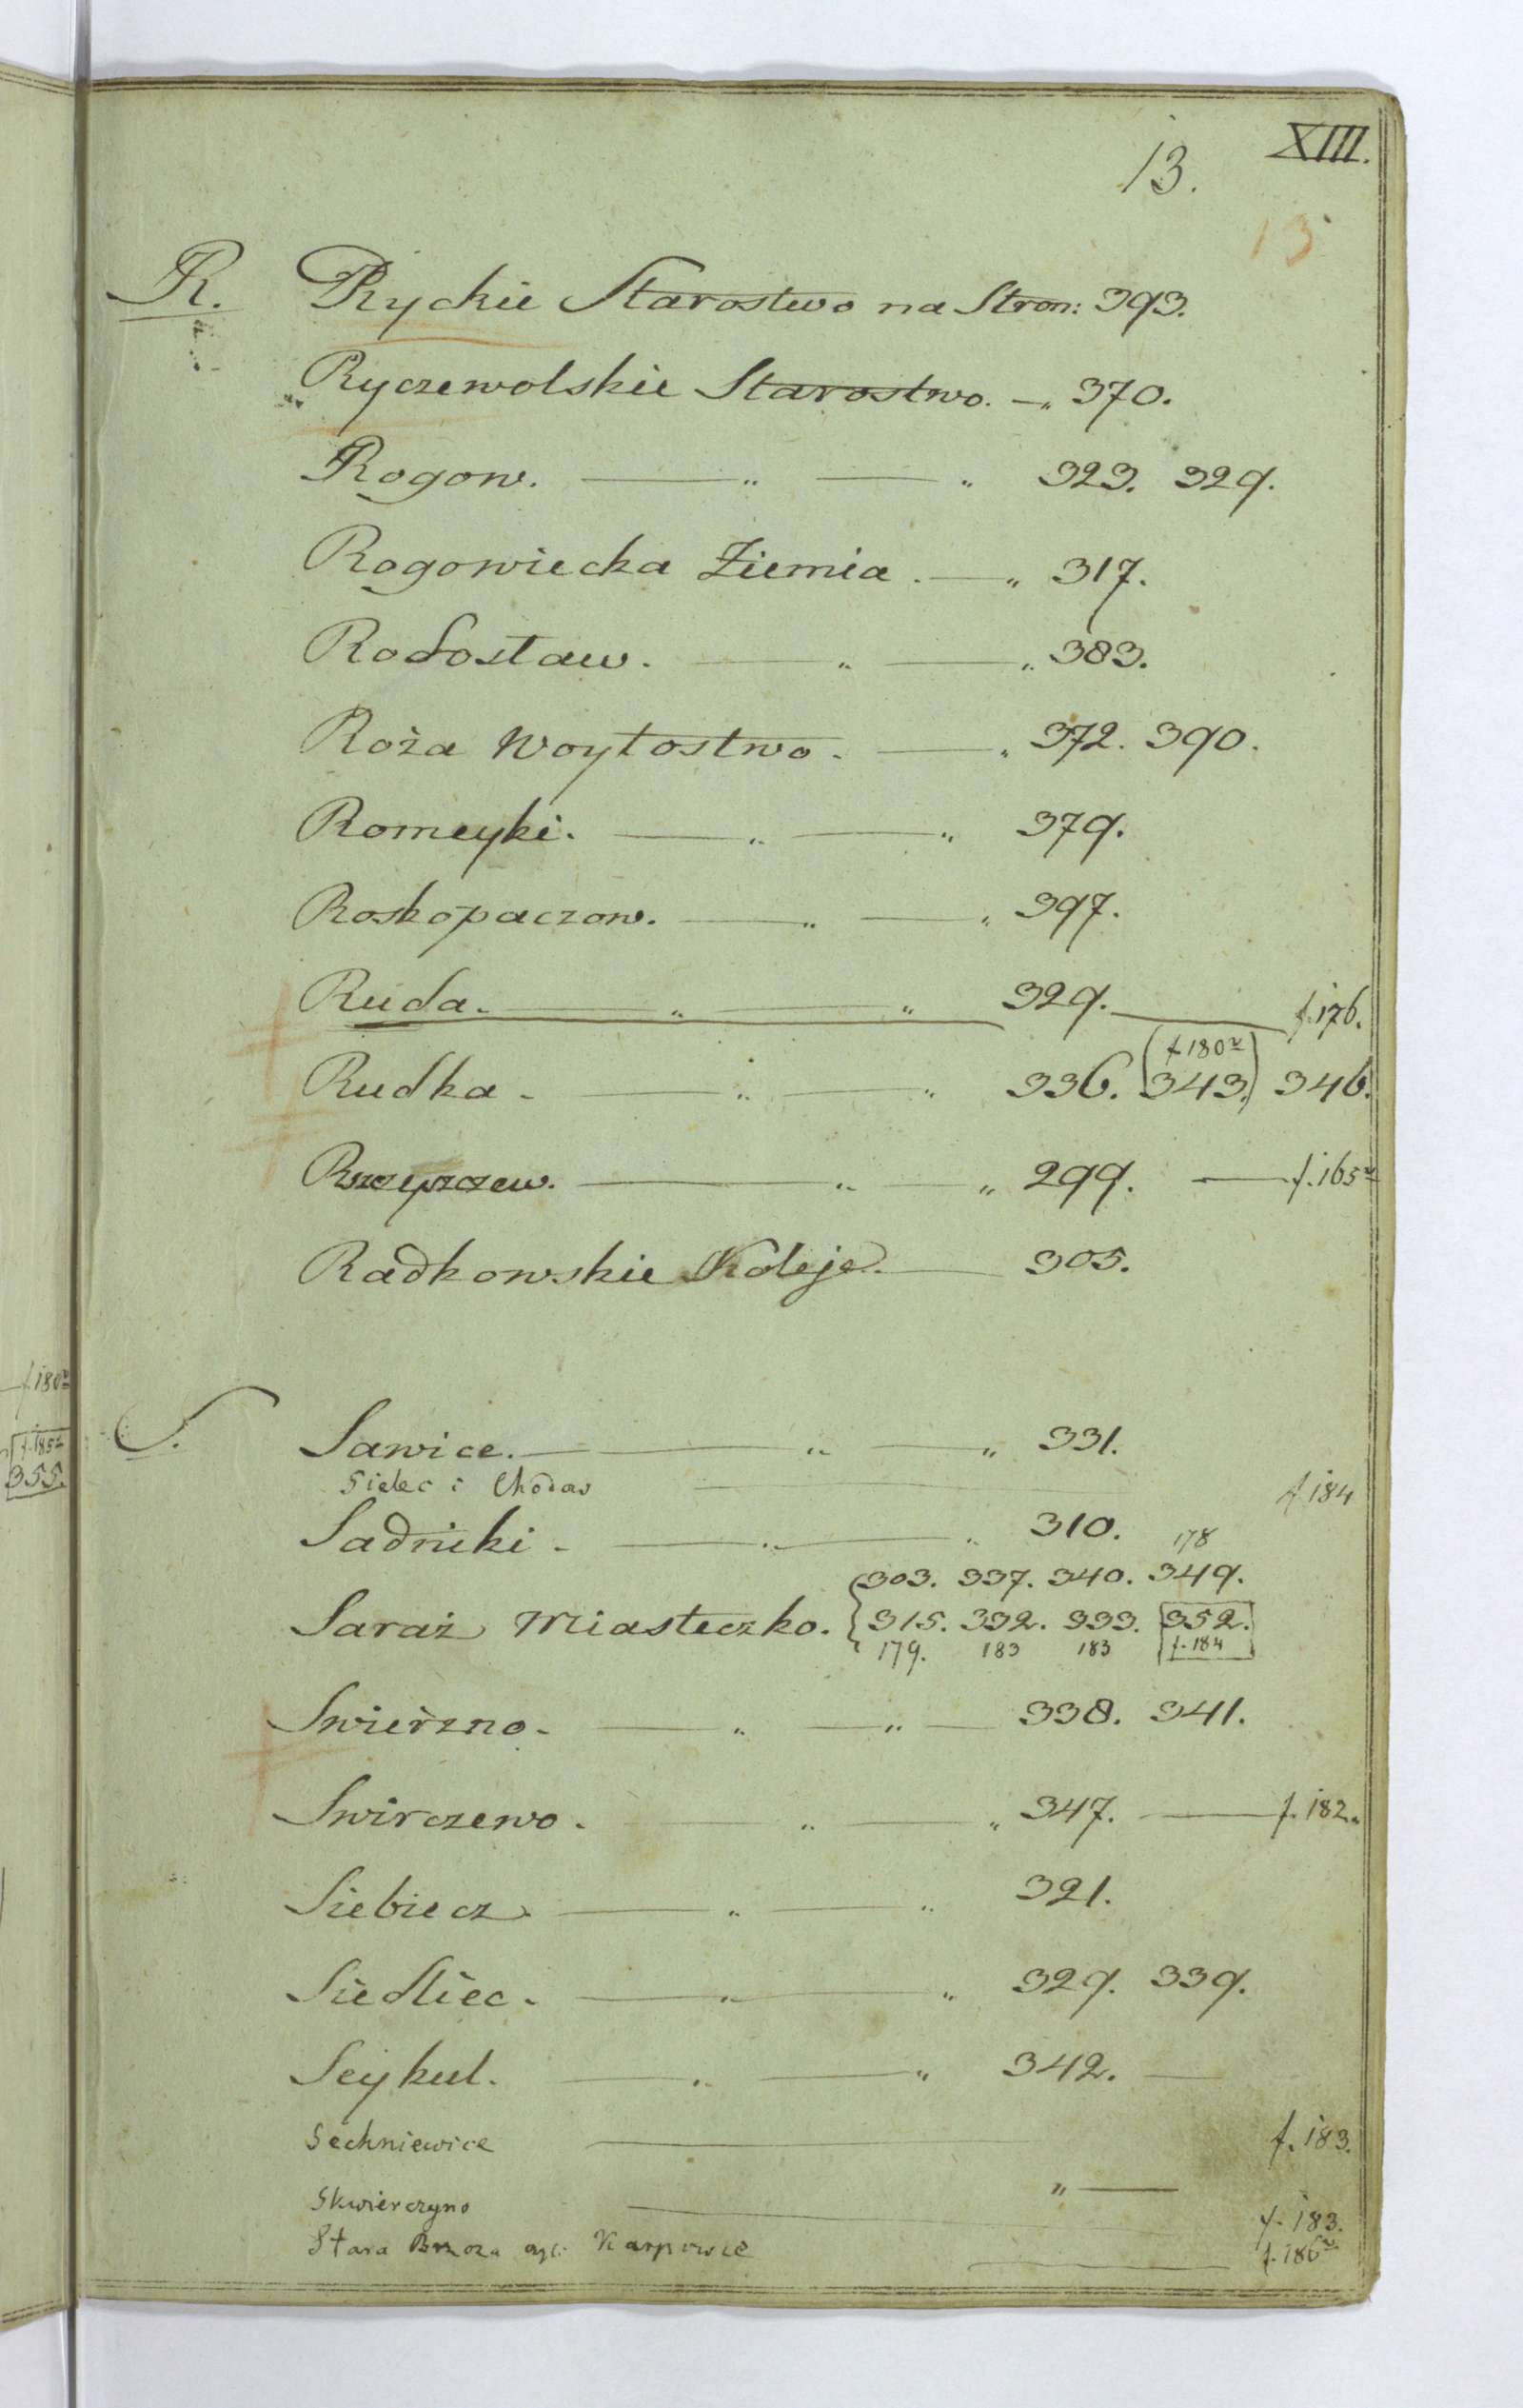 XIII.
13.
13
R. Ryckie Starostwo na Stron: 393.
Ryczewolskie Starostwo. — „ 370.
Rogow. — „ — „ 323. 329.
Rogowiecka Ziemia. — „ 317.
Rodostaw. — „ — „ 383.
Roża Woytostwo. — „ 372. 390.
Romeyki. — „ — „ 379.
Roskopaczow. — „ — „ 397.
Ruda. — „ — „ 329. — f. 176.
f 180v
Rudka. — „ — „ 336. (343.) 346.
— „ — „ 299. — f. 165v
Radkowskie Koleje. — 305.
S. Sawice. — „ — „ 331.
Sielec i Chodaw — f 184
Sadnicki. — „ — „ 310.
178
303. 337. 340. 349.
Saraż Miasteczko. { 315. 332. 333. 352.
179. 183 183 f. 184
Swierzno. — „ — „ — 338. 341.
Swirczewo. — „ — „ 347. — f. 182.
Siebiecz. — „ — „ 321.
Siedliec. — „ — „ 329. 339.
Seykul. — „ — „ 342. —
Sechniewice — f. 183.
Skwierczyno — „ — f. 183.
Stara Brzoza czyli Karpowce — f. 186v
f. 180v
f. 185v
355.